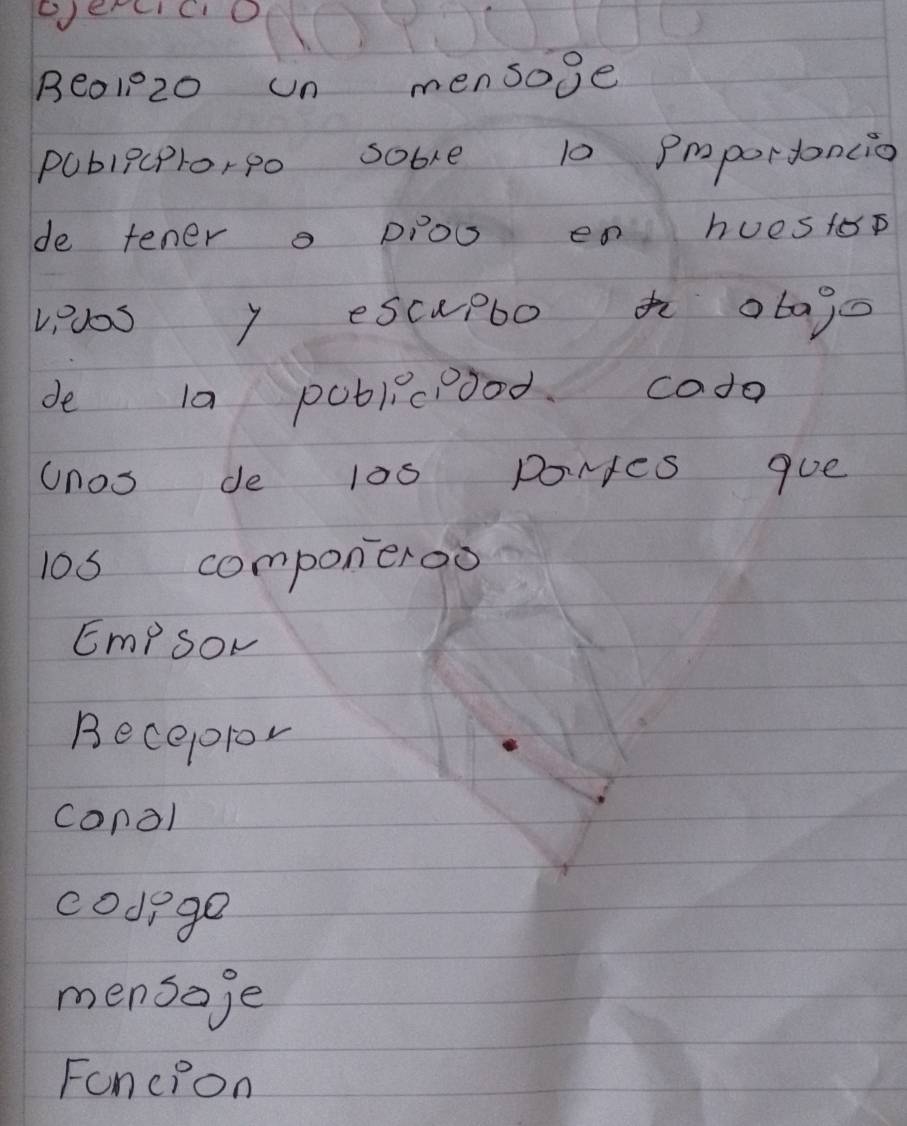 Ejercicio
Realizo un mensaje
publicitario sobre la importancia
de tener a Dios en nuestos
vidas y escribo abajo
de la publicidad. cada
unas de las partes que
los componeros
Emisor
Receptor
canal
codigo
mensaje
Funcion